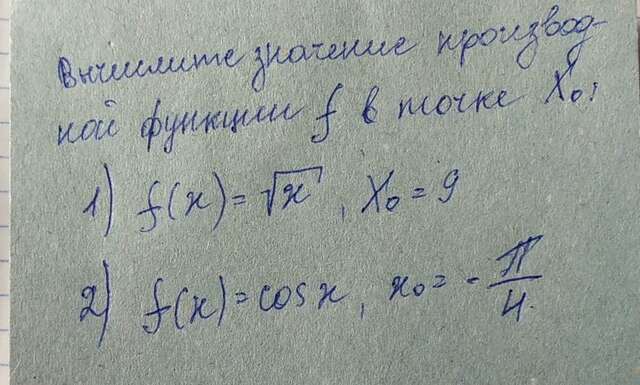 Вычислите значение производ-
ной функции f в точке X₀:
1) f(x) = √x, X₀ = 9
2) f(x) = cos x, x₀ = -π/4.